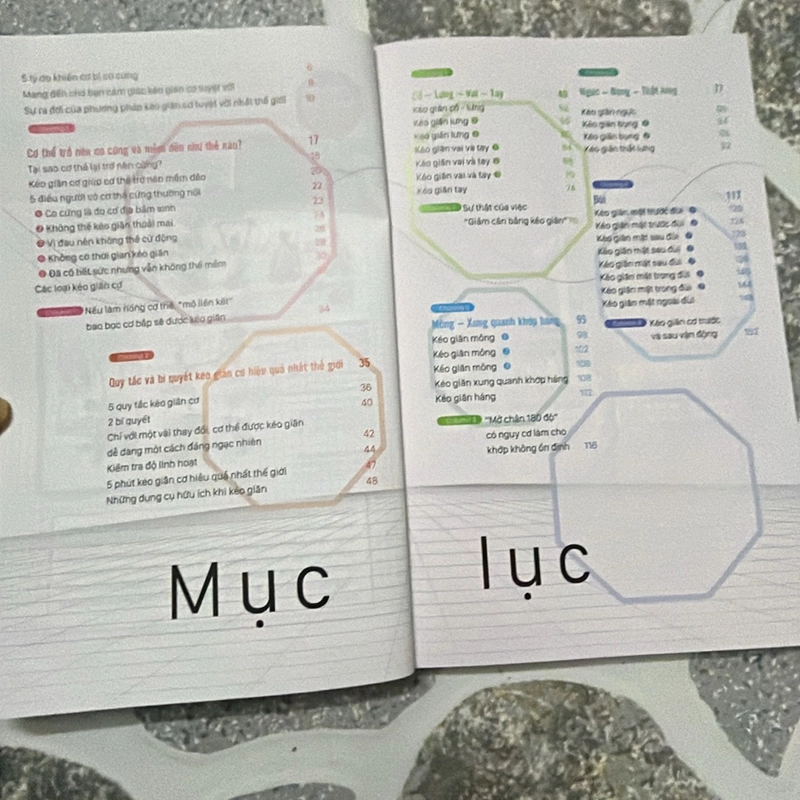 5 lý do khiến cơ bị co cứng 6
Mang đến cho bạn cảm giác kéo giãn cơ tuyệt vời 8
Sự ra đời của phương pháp kéo giãn cơ tuyệt vời nhất thế giới 10
Cơ thể trở nên co cứng và mềm dẻo như thế nào? 17
Tại sao cơ thể lại trở nên cứng? 18
Kéo giãn cơ giúp cơ thể trở nên mềm dẻo 20
5 điều người có cơ thể cứng thường nói 22
Co cứng là do cơ địa bẩm sinh 23
Không thể kéo giãn thoải mái
Vì đau nên không thể cử động
Không có thời gian kéo giãn
Đã cố hết sức nhưng vẫn không thể mềm
Các loại kéo giãn cơ
Nếu làm nóng cơ thể, "mô liên kết"
bao bọc cơ bắp sẽ được kéo giãn 34
Chương 2
Quy tắc và bí quyết kéo giãn cơ hiệu quả nhất thế giới 35
5 quy tắc kéo giãn cơ 36
2 bí quyết 40
Chỉ với một vài thay đổi, cơ thể được kéo giãn
dễ dàng một cách đáng ngạc nhiên 42
Kiểm tra độ linh hoạt 44
5 phút kéo giãn cơ hiệu quả nhất thế giới 47
Những dụng cụ hữu ích khi kéo giãn 48
Mục
Cổ - Lưng - Vai - Tay 49
Kéo giãn cổ - lưng
Kéo giãn lưng
Kéo giãn lưng
Kéo giãn vai và tay
Kéo giãn vai và tay
Kéo giãn vai và tay
Kéo giãn tay 74
Sự thật của việc
"Giảm cân bằng kéo giãn"
Mông - Xung quanh khớp háng 95
Kéo giãn mông 98
Kéo giãn mông 102
Kéo giãn mông
Kéo giãn xung quanh khớp háng 108
Kéo giãn háng 112
"Mở chân 180 độ"
có nguy cơ làm cho
khớp không ổn định 116
Ngực - Bụng - Thắt lưng 77
Kéo giãn ngực
Kéo giãn bụng
Kéo giãn bụng
Kéo giãn thắt lưng 92
Đùi 117
Kéo giãn mặt trước đùi 120
Kéo giãn mặt trước đùi 124
Kéo giãn mặt sau đùi 128
Kéo giãn mặt sau đùi
Kéo giãn mặt sau đùi
Kéo giãn mặt trong đùi 140
Kéo giãn mặt trong đùi 144
Kéo giãn mặt ngoài đùi 148
Kéo giãn cơ trước
và sau vận động 152
lục